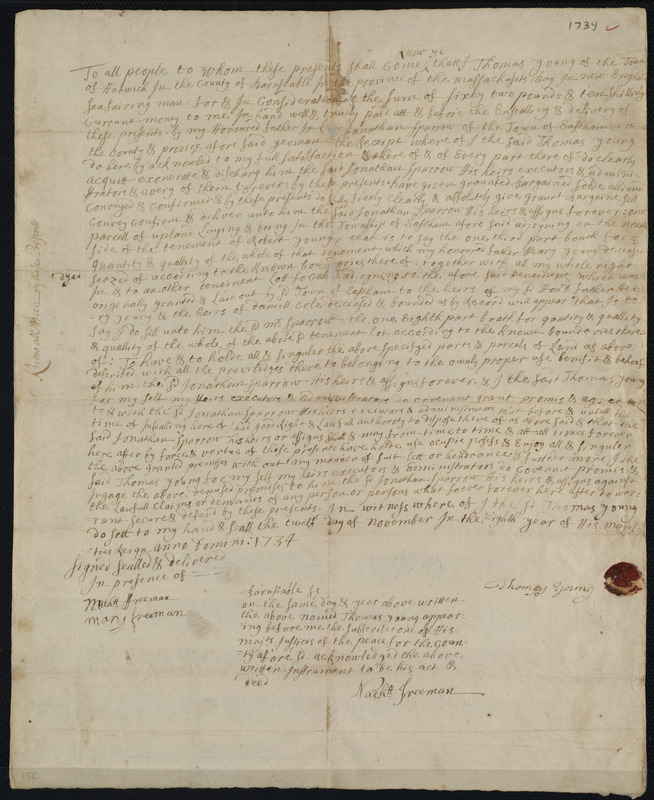 1734
Know ye
To all people to whom these presents shall Come, that I Thomas Young of the Town
of Harwick In the County of Barnstable In the province of the massachusets Bay In new England
Seafairing man for & In Consideration of the Sum of sixty two pounds & ten shillings
Currant money to me In hand well & truely paid att & before the Ensealing & delivery of
these presents by my Honoured father In Jonathan Sparrow of the Town of Eastham in
the County & province afore said yeoman the Receipt where of I the said Thomas Young
do here by acknowled to my full satisfaction & there of & of Every part there of do clearly
acquitt exonerate & discharg him the said Jonathan Sparrow His heirs executors & admini-
strators & every of them forever: by these presents: have given graunted Bargained solde
Conveyed & Confirmed & by these presents do fully freely clearly & absolutely give graunt Bargaine sell
Convey Confirm & deliver unto him the said Jonathan Sparrow His heirs & assigns forever: one
parcell of upland Laying & being In the Township of Eastham afore said adjoyning on the north
side of the tenement of Robert young, that is to say the one third part boath for
Quantity & quallity of the whole of that tenement which my honoured father Henry young deceased
Seazed of according to the known boundaries there of: together with all my whole right
In & to another tenement Lott so Calld adjoyning to the afore said tenement which was
originally granted & Laid out by Sd Town of Eastham to the heirs of my Sd Hond father Hen-
ery young & the heirs of daniell Cole deceased & bounded as by Record will appear that Is to
say I do sell unto him the Sd mr Sparrow the one Eighth part boath for quantity & quallity
& quality of the whole of the above Sd tenement lot according to the known boundaries there
of: To have & to holde all & singuler the above specifyed parts & parcels of Land as above
described with all the previledges there to belonging to the ownly proper use benifit & behoof
of him the Sd Jonathan Sparrow His heirs & assigns forever. & I the said Thomas young
for my self my Heirs executors & administrators do covenant grant promis & agree
to & with the Sd Jonathan Sparrow His heirs executors & administrators that before & untill the
time of Insealing here of I had good Right & Lawfull authority to dispose there of as above said & that the
said Jonathan Sparrow his heirs or assigns shall & may from time to time & att all times forever
here after by force & vertue of these presents have holde use ocupie posess & Enjoy all & singuler
the above granted premises with out any manner of suit lett or hinderance & further more I the
said Thomas young for my self my heirs executors & administrators do Covenant promis &
Ingage the above demised premises to him the Sd Jonathan Sparrow His heirs & assigns against
the Lawfull Claims or demands of any person or persons what soever forever here after to war-
rant secure & defend by these presents. In witness where of I the Sd Thomas young
do sett to my hand & seall the twelf day of november In the Eighth year of His majes-
ties Reign anno Domini: 1734
Signed sealled & delivered
In presence of
Nathll Freeman
Mary Freeman
Thomas Young
Barnstable ss
on the same day & year above written
the above named Thomas young appear-
ing before me the subscriber one of His
maj's Justices of the peace for the Coun-
ty afore Sd acknowledged the above
written Instrument to be his act &
deed
Nathll Freeman
Know all Men by these Presents